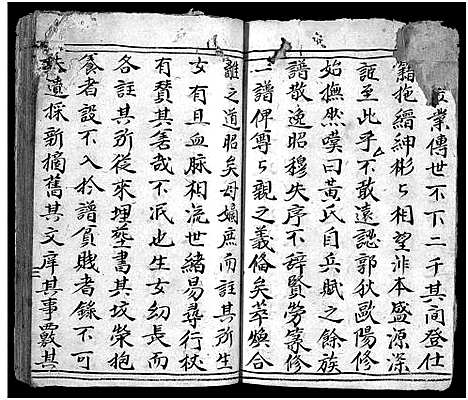 業傳世不下二千其间登仕
籍抱縉紳彬〻相望非本盛源深
詎至此乎不敢遠認郭狄歐陽修
始撫然嘆曰黃氏自兵賦之餘族
譜散逸昭穆失序不辞賢勞篆修
一譜俾尊〻親之義俻矣萃渙合
離之道昭矣母嫡庶而註其所生
女有且血脉相混世緒易尋行杖
有賛其善哉不泯也生女幼長而
各註其所從來埋葬書其坟荣抱
養者設不入於譜負賎者錄不可
遺採新摘舊其文庠其事覈其